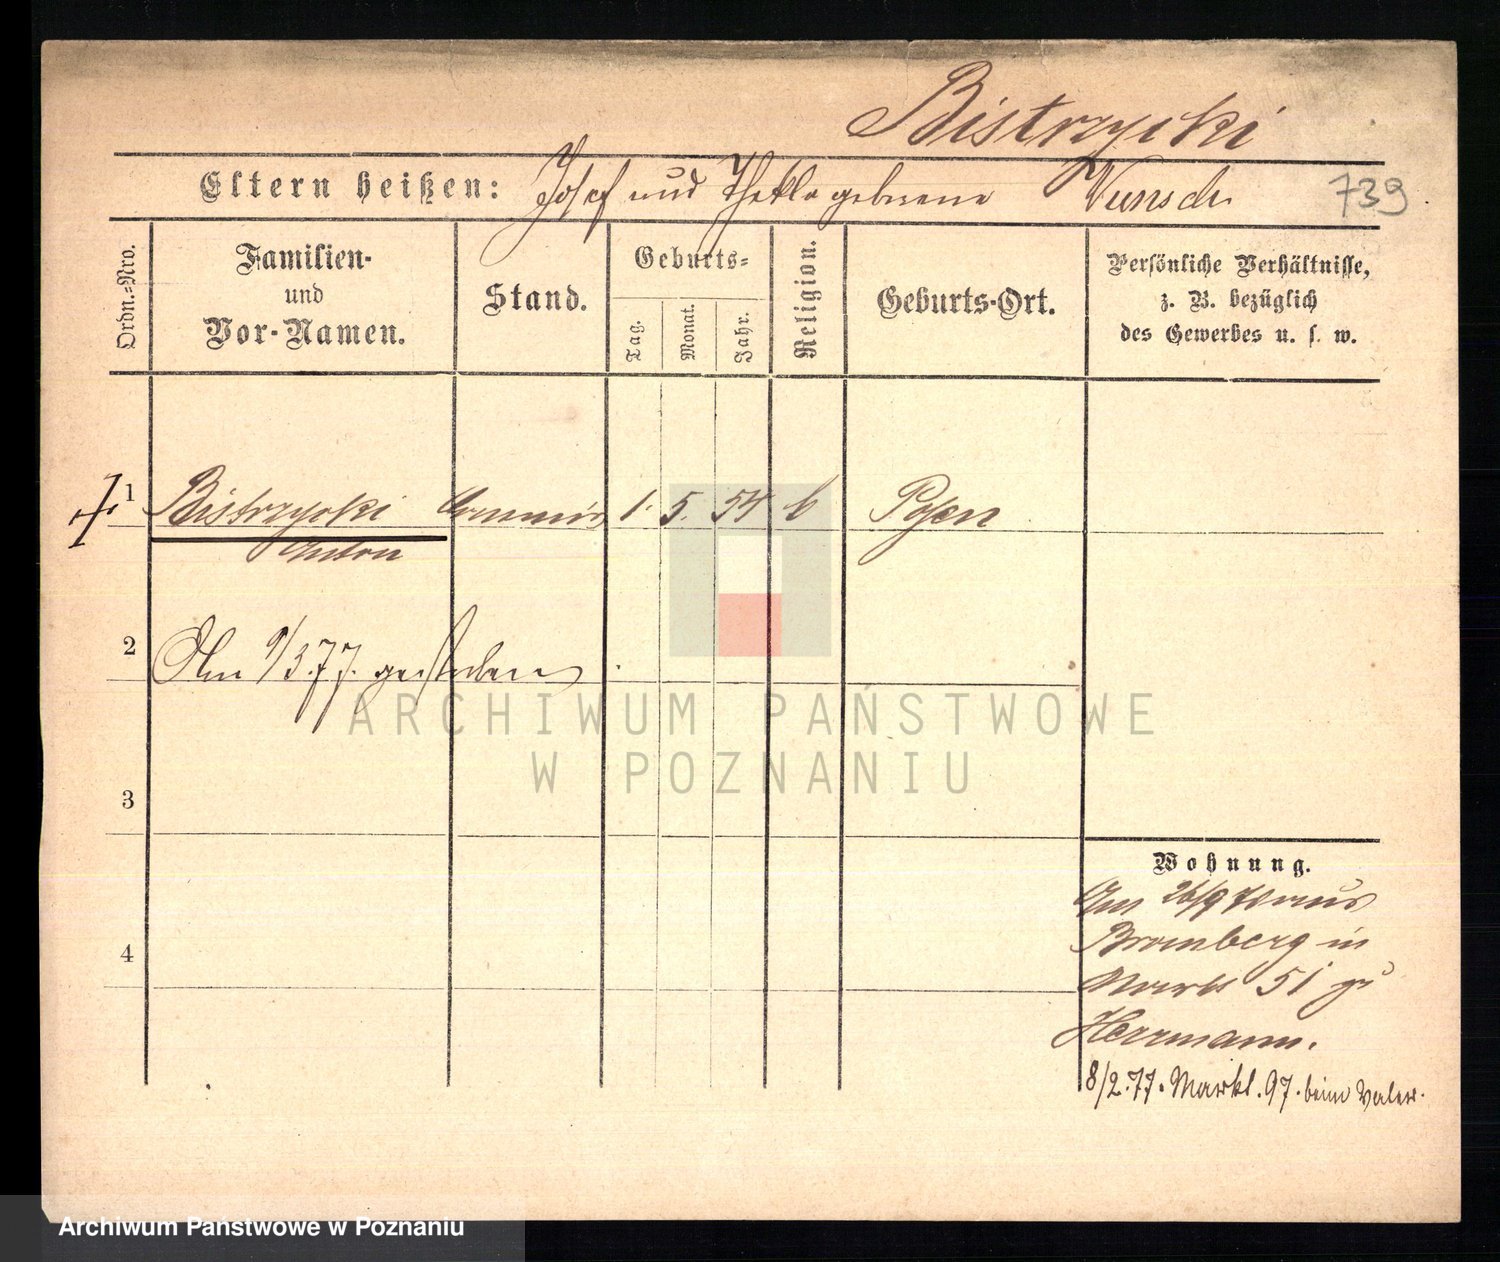 Bistrzycki
Eltern heißen: Josef und Thekla geborene Wunsch
739
Ordn.-Nro.
Familien-
und
Vor-Namen.
Stand.
Geburts-
Tag.
Monat.
Jahr.
Religion.
Geburts-Ort.
Persönliche Verhältnisse,
z. B. bezüglich
des Gewerbes u. s. w.
1 Bistrzycki Commis 1. 5. 54 k Posen
Anton
2 Am 9/3.77. gestorben
3
4
Wohnung.
Am 26/9 76 aus
Bromberg in
Markt 51 zu
Herrmann.
8/2.77. Markt. 97. beim Vater.
ARCHIWUM PAŃSTWOWE
W POZNANIU
Archiwum Państwowe w Poznaniu